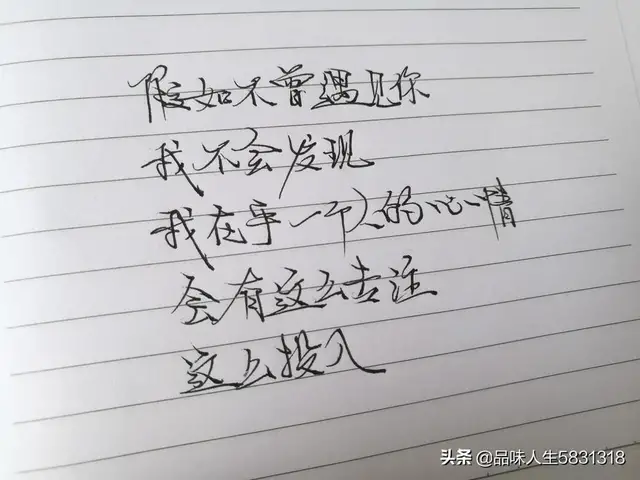 假如不曾遇见你
我不会发现
我在乎一个人的心情
会有这么专注
这么投入
头条 @品味人生5831318